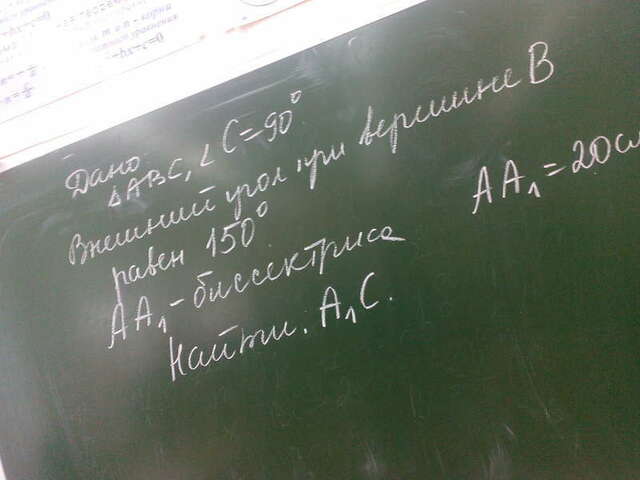 Дано:
△ABC, ∠C=90°
Внешний угол при вершине B
равен 150°
AA₁-биссектриса
AA₁=20см
Найти: A₁C.